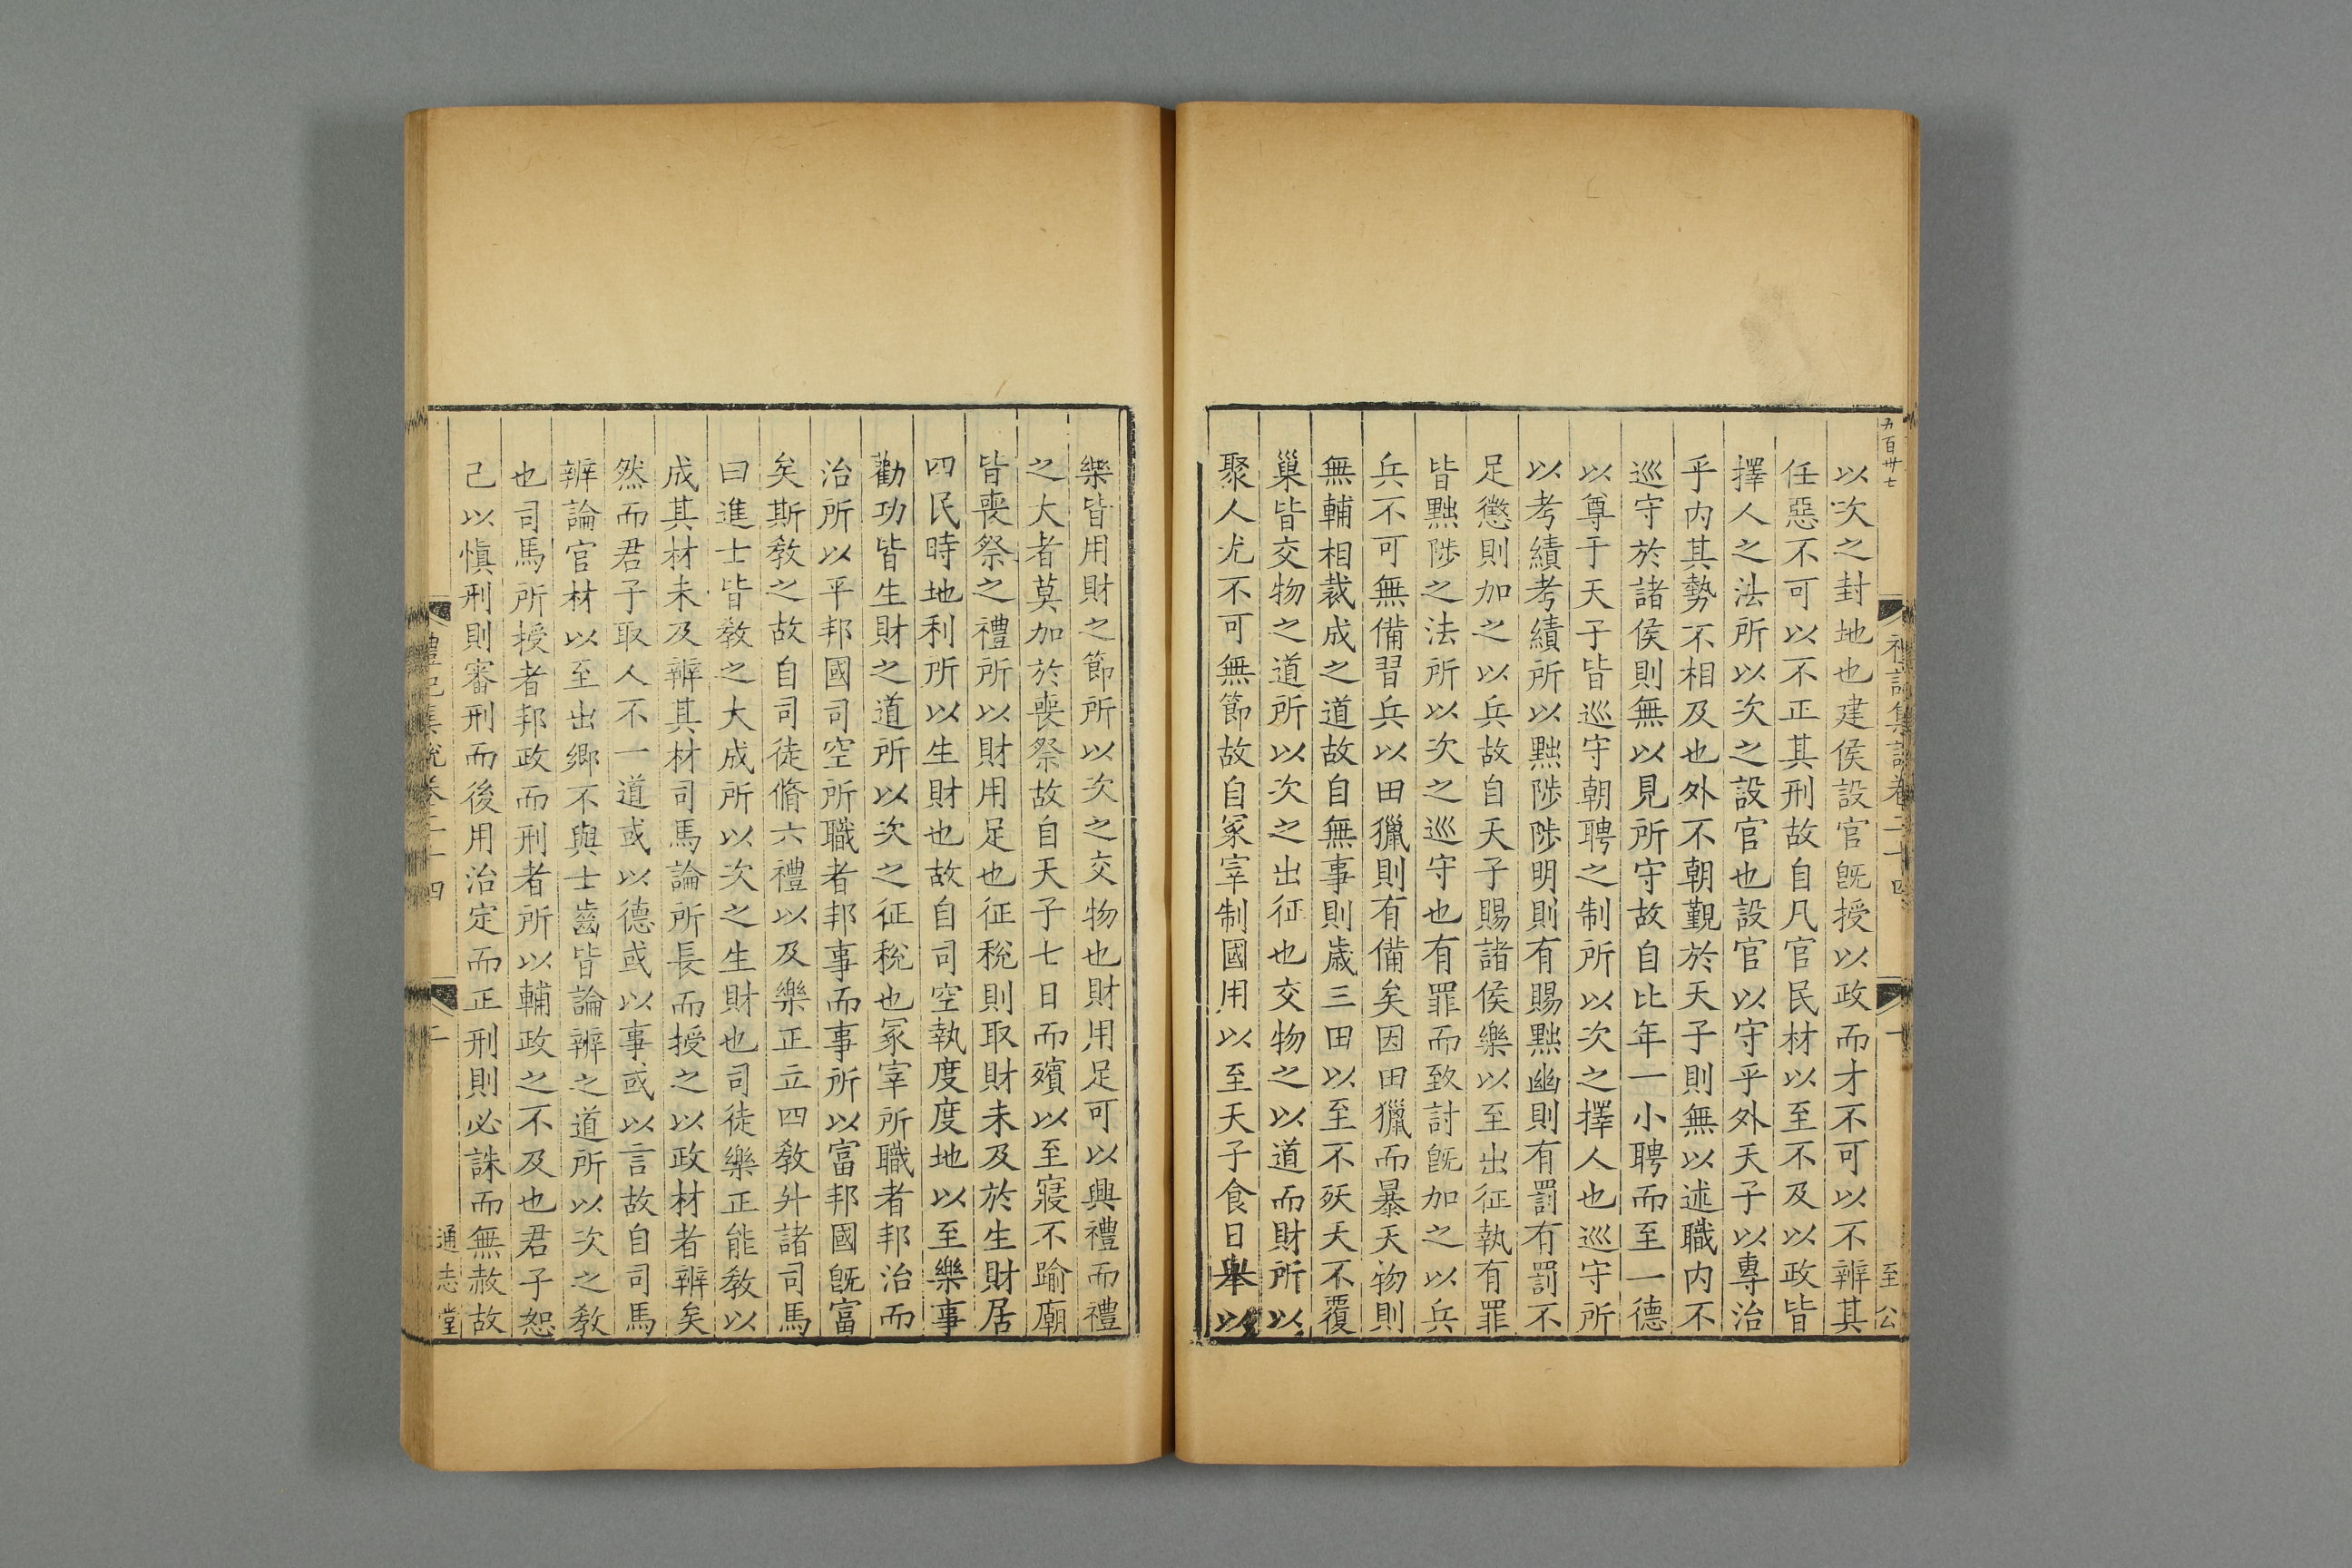 五百卅七
禮記集說卷二十四
十
至公
以次之封地也建侯設官旣授以政而才不可以不辨其
任惡不可以不正其刑故自凡官民材以至不及以政皆
擇人之法所以次之設官也設官以守乎外天子以專治
乎内其勢不相及也外不朝覲於天子則無以述職内不
巡守於諸侯則無以見所守故自比年一小聘而至一德
以尊于天子皆巡守朝聘之制所以次之擇人也巡守所
以考績考績所以黜陟陟明則有賜黜幽則有罰有罰不
足懲則加之以兵故自天子賜諸侯樂以至出征執有罪
皆黜陟之法所以次之巡守也有罪而致討旣加之以兵
兵不可無備習兵以田獵則有備矣因田獵而暴天物則
無輔相裁成之道故自無事則歲三田以至不殀夭不覆
巢皆交物之道所以次之出征也交物之以道而財所以
聚人尤不可無節故自冢宰制國用以至天子食日舉以
樂皆用財之節所以次之交物也財用足可以興禮而禮
之大者莫加於喪祭故自天子七日而殯以至寢不踰廟
皆喪祭之禮所以財用足也征稅則取財未及於生財居
四民時地利所以生財也故自司空執度度地以至樂事
勸功皆生財之道所以次之征稅也冢宰所職者邦治而
治所以平邦國司空所職者邦事而事所以富邦國旣富
矣斯敎之故自司徒脩六禮以及樂正立四敎升諸司馬
曰進士皆敎之大成所以次之生財也司徒樂正能敎以
成其材未及辨其材司馬論所長而授之以政材者辨矣
然而君子取人不一道或以德或以事或以言故自司馬
辨論官材以至出鄉不與士齒皆論辨之道所以次之敎
也司馬所授者邦政而刑者所以輔政之不及也君子恕
己以愼刑則審刑而後用治定而正刑則必誅而無赦故
禮記集說卷二十四
通志堂